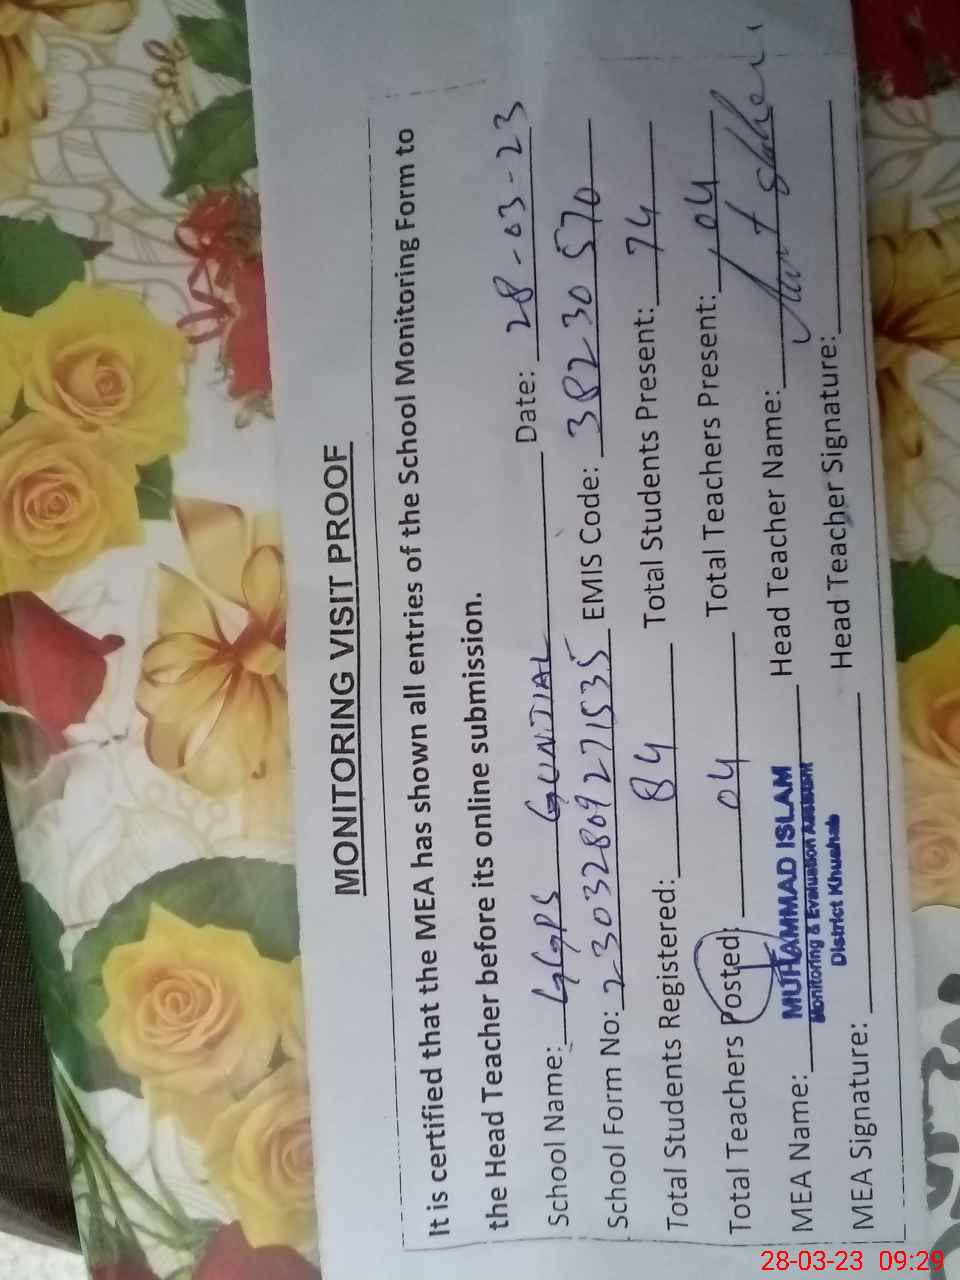 MONITORING VISIT PROOF
It is certified that the MEA has shown all entries of the School Monitoring Form to
the Head Teacher before its online submission.
School Name: GGPS GUNJIAL Date: 28-03-23
School Form No: 23032809271535 EMIS Code: 38230570
Total Students Registered: 84 Total Students Present: 74
Total Teachers Posted: 04 Total Teachers Present: 04
MEA Name: MUHAMMAD ISLAM Head Teacher Name:
Monitoring & Evaluation Assistant
District Khushab
MEA Signature: Head Teacher Signature:
28-03-23 09:29